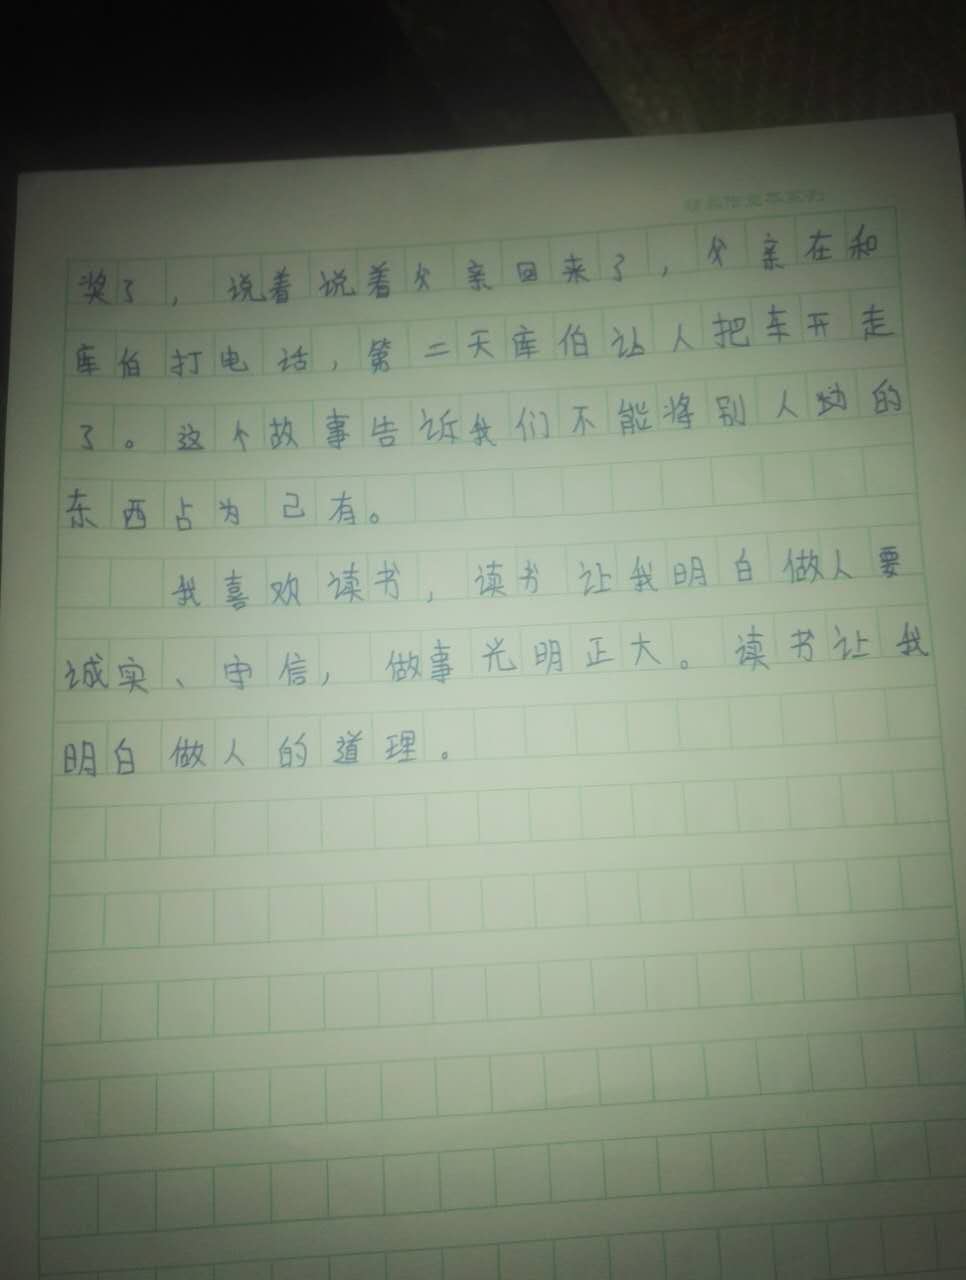 奖了，说着说着父亲回来了，父亲在和
库伯打电话，第二天库伯让人把车开走
了。这个故事告诉我们不能将别人的
东西占为己有。
我喜欢读书，读书让我明白做人要
诚实、守信，做事光明正大。读书让我
明白做人的道理。